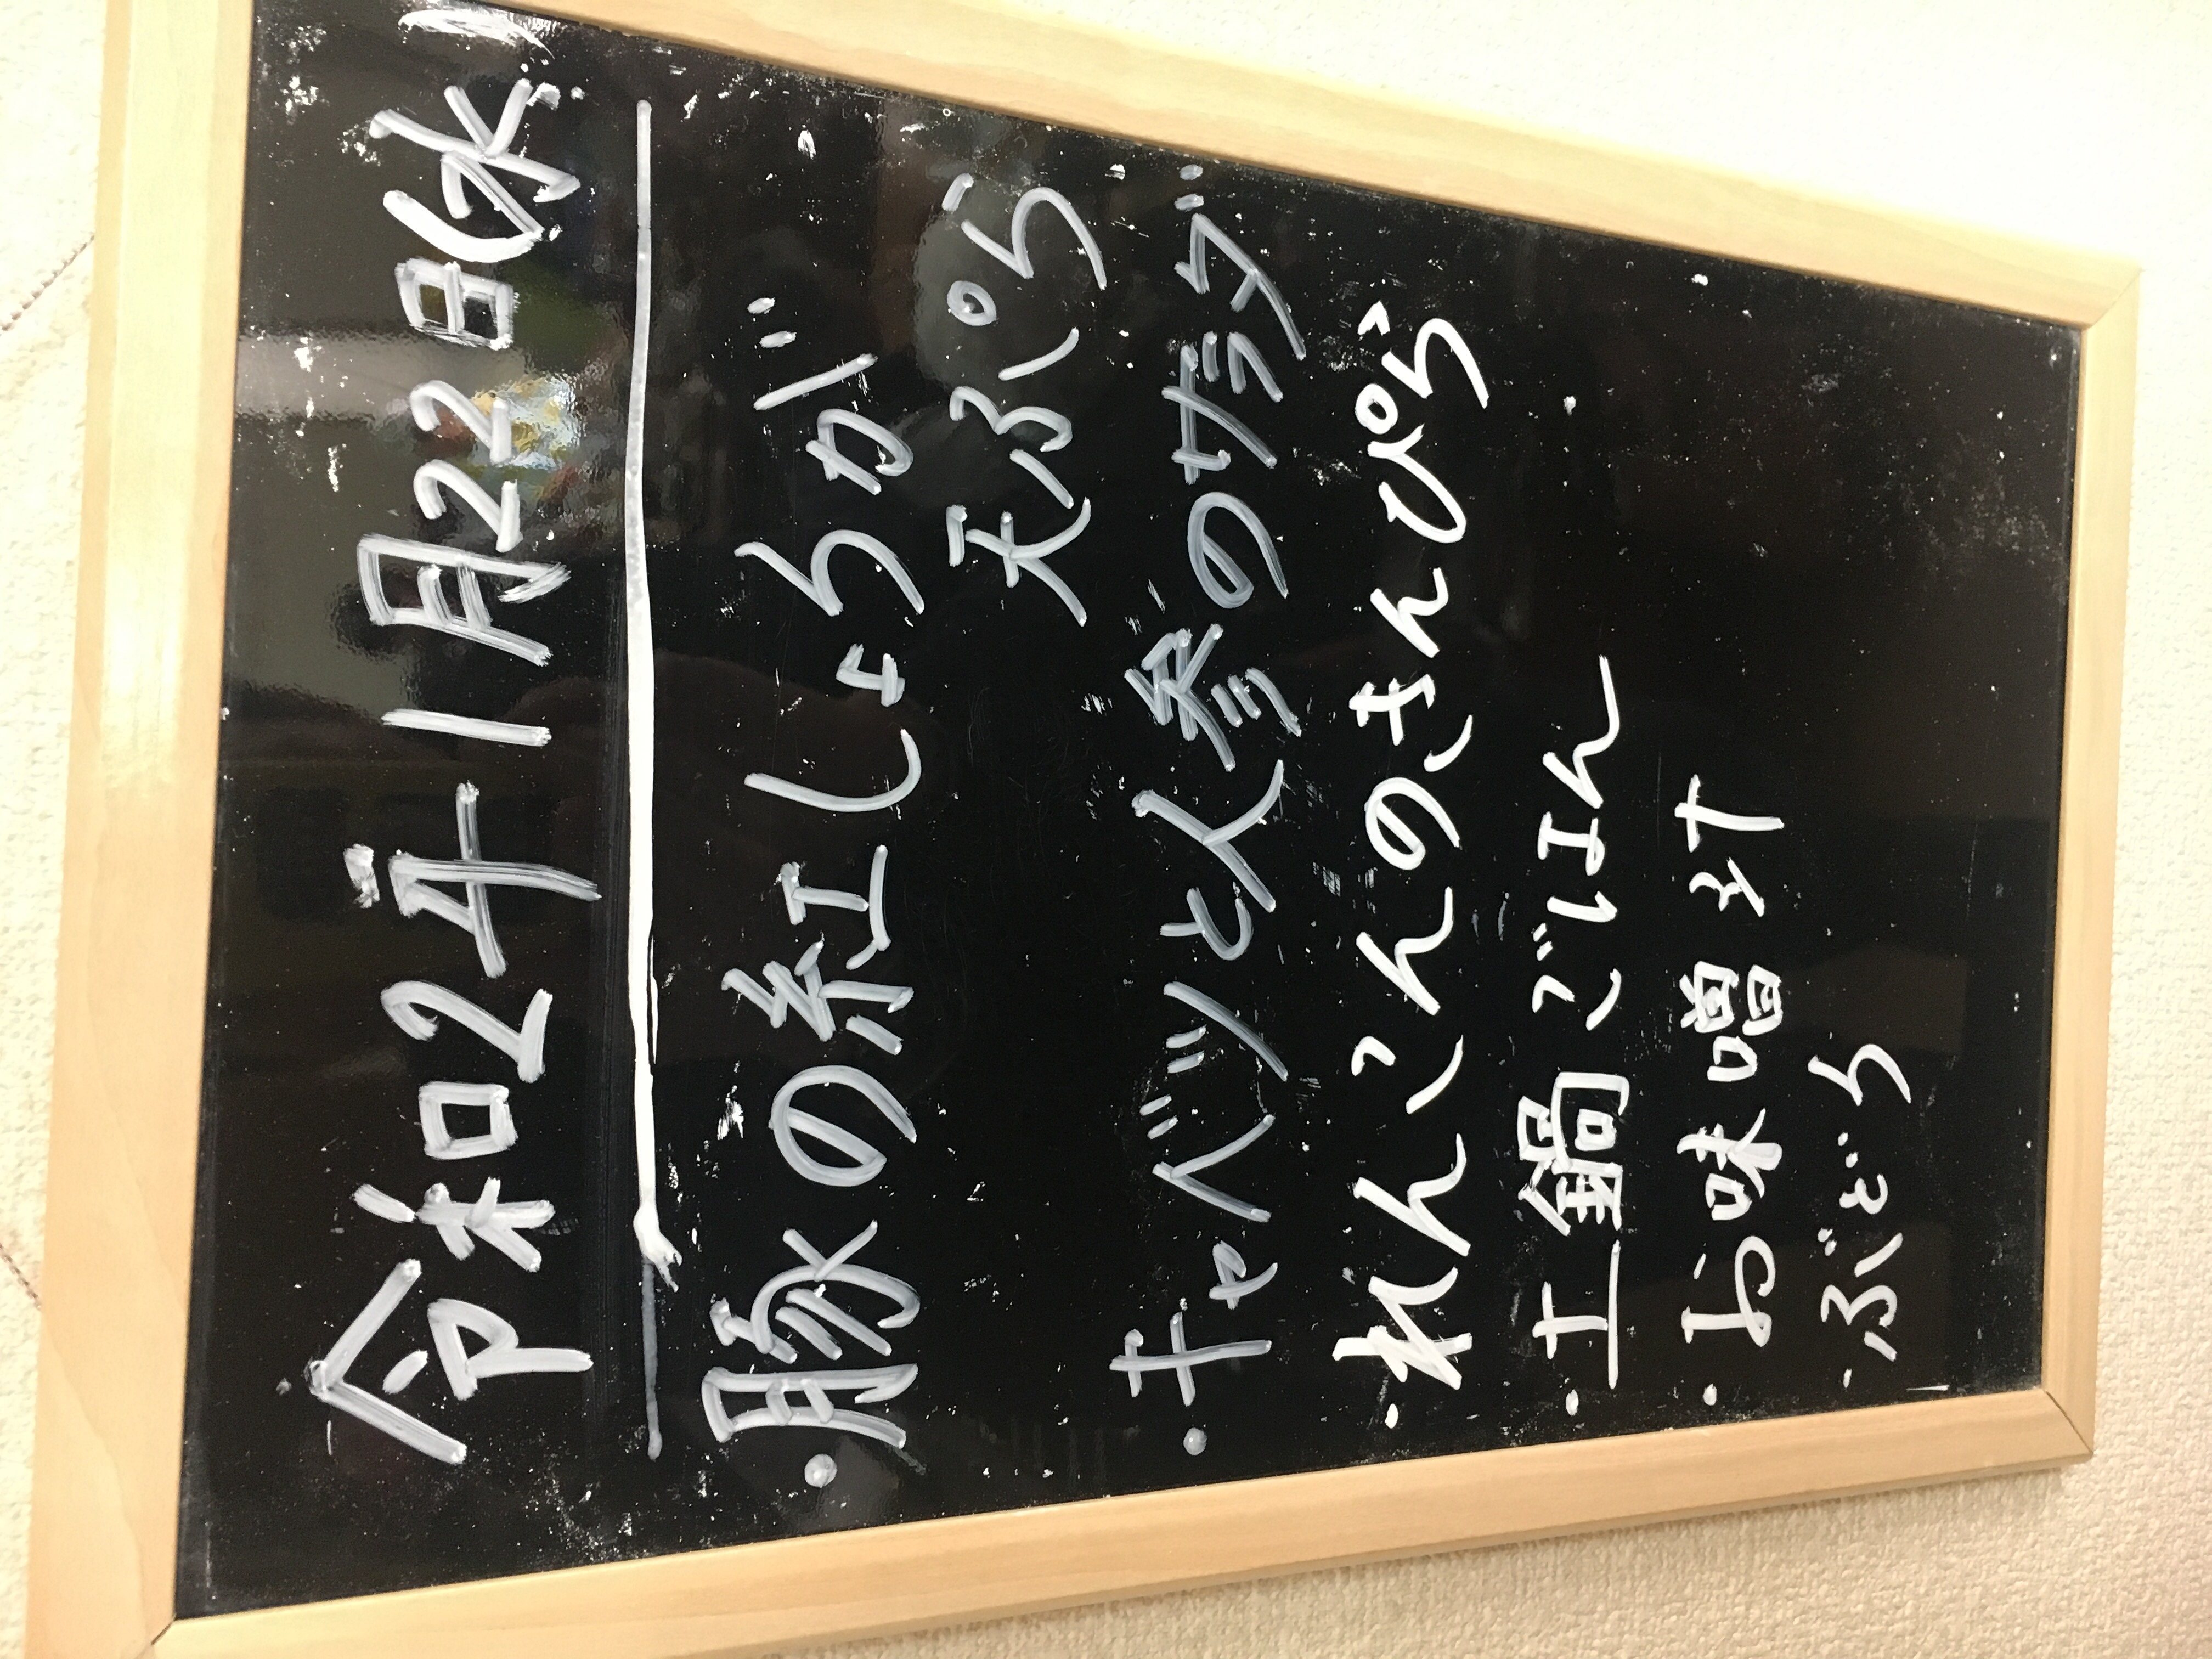 令和2年1月22日(水)
・豚の紅しょうが
天ぷら
・キャベツと人参のサラダ
・れんこんのきんぴら
・土鍋ごはん
・お味噌汁
・ぶどう